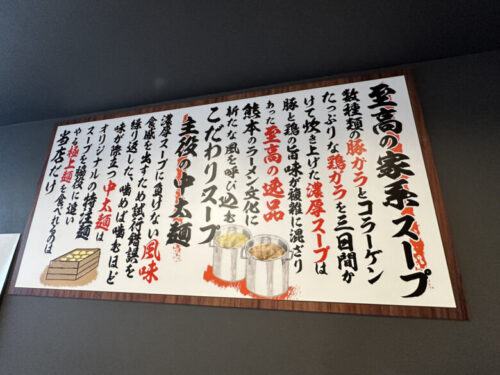 至高の家系スープ
数種類の豚ガラとコラーゲン
たっぷりな鶏ガラを三日間か
けて炊き上げた濃厚スープは
豚と鶏の旨味が複雑に混ざり
あった至高の逸品
熊本のラーメン文化に
新たな風を呼び込む
こだわりスープ
主役の中太麺
濃厚スープに負けない風味
食感を出すため試行錯誤を
繰り返した。噛めば噛むほど
味が際立つ中太麺は
オリジナルの特注麺
スープを最後に追い
やる極上麺を食べれるのは
当店だけ